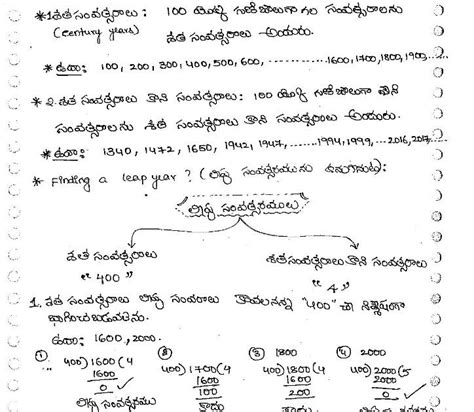 *1. శత సంవత్సరాలు : 100 యొక్క గుణిజాలుగా గల సంవత్సరాలను
(century years) శత సంవత్సరాలు అందురు.
* ఉదా: 100, 200, 300, 400, 500, 600, ............1600, 1700, 1800, 1900,.....
* 2. శత సంవత్సరాలు కాని సంవత్సరాలు: 100 యొక్క గుణిజాలుగా కాని
సంవత్సరాలను శత సంవత్సరాలు కాని సంవత్సరాలు అందురు.
* ఉదా: 1340, 1472, 1650, 1942, 1947,.......1994, 1999, ...2016, 2017.....
* Finding a leap year? (లీపు సంవత్సరమును కనుగొనుట):
లీపు సంవత్సరములు
శత సంవత్సరాలు శత సంవత్సరాలు కాని సంవత్సరాలు
"400" "4"
1. శత సంవత్సరాలు లీపు సంవరాలు కావలెనన్న "400" చే నిశ్శేషంగా
భాగించబడవలెను.
ఉదా: 1600, 2000.
① ② ③ 1800 ④ 2000
400)1600(4 400)1700(4 400)1800(4 400)2000(5
1600 1600 1600 2000
0 ✓ 100 200 0 ✓
లీపు సంవత్సరము కాదు కాదు